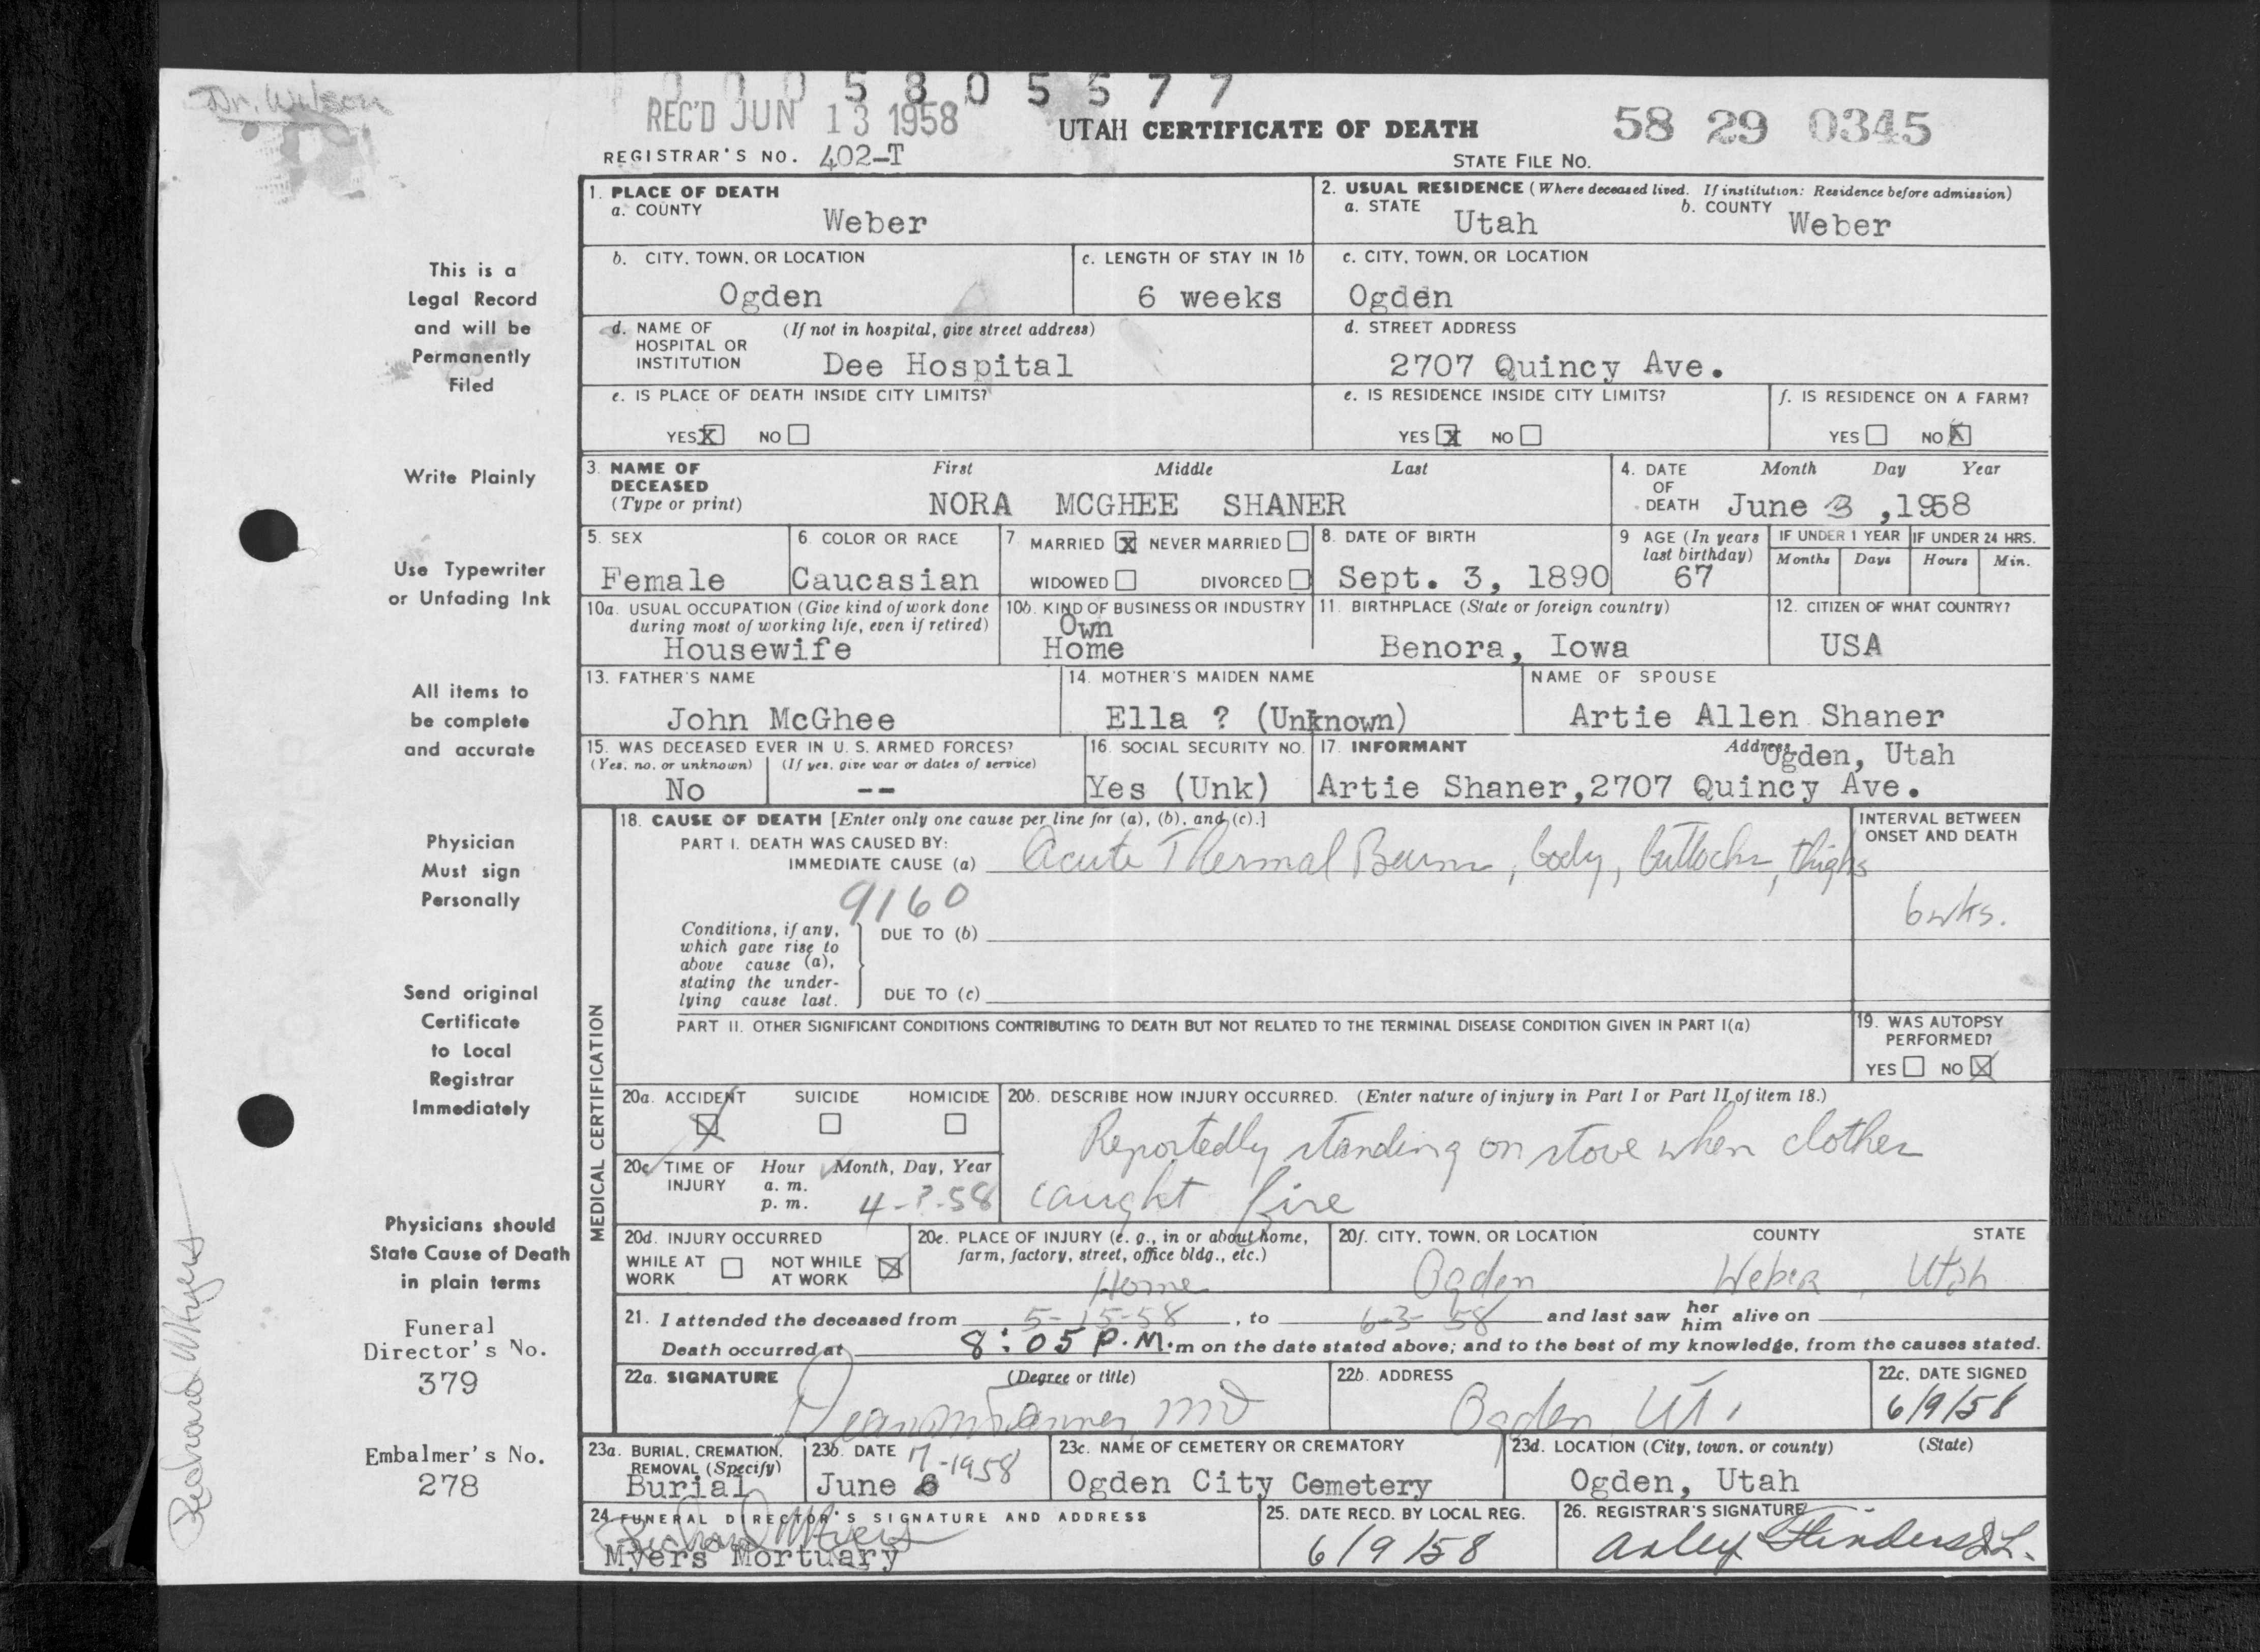 Dr. Wilson
0005805577
REC'D JUN 13 1958
UTAH CERTIFICATE OF DEATH
58 29 0345
REGISTRAR'S NO. 402-T
STATE FILE NO.
This is a
Legal Record
and will be
Permanently
Filed
Write Plainly
Use Typewriter
or Unfading Ink
All items to
be complete
and accurate
Physician
Must sign
Personally
Send original
Certificate
to Local
Registrar
Immediately
Physicians should
State Cause of Death
in plain terms
Funeral
Director's No.
379
Embalmer's No.
278
Richard Myers
1. PLACE OF DEATH
a. COUNTY
Weber
2. USUAL RESIDENCE (Where deceased lived. If institution: Residence before admission)
a. STATE
Utah
b. COUNTY
Weber
b. CITY, TOWN, OR LOCATION
Ogden
c. LENGTH OF STAY IN 1b
6 weeks
c. CITY, TOWN, OR LOCATION
Ogden
d. NAME OF HOSPITAL OR INSTITUTION
(If not in hospital, give street address)
Dee Hospital
d. STREET ADDRESS
2707 Quincy Ave.
e. IS PLACE OF DEATH INSIDE CITY LIMITS?
YES X NO
e. IS RESIDENCE INSIDE CITY LIMITS?
YES X NO
f. IS RESIDENCE ON A FARM?
YES NO X
3. NAME OF DECEASED
(Type or print)
First Middle Last
NORA MCGHEE SHANER
4. DATE OF DEATH
Month Day Year
June 3, 1958
5. SEX
Female
6. COLOR OR RACE
Caucasian
7. MARRIED X NEVER MARRIED
WIDOWED DIVORCED
8. DATE OF BIRTH
Sept. 3, 1890
9 AGE (In years last birthday)
67
IF UNDER 1 YEAR
Months Days
IF UNDER 24 HRS.
Hours Min.
10a. USUAL OCCUPATION (Give kind of work done during most of working life, even if retired)
Housewife
10b. KIND OF BUSINESS OR INDUSTRY
Own
Home
11. BIRTHPLACE (State or foreign country)
Benora, Iowa
12. CITIZEN OF WHAT COUNTRY?
USA
13. FATHER'S NAME
John McGhee
14. MOTHER'S MAIDEN NAME
Ella ? (Unknown)
NAME OF SPOUSE
Artie Allen Shaner
15. WAS DECEASED EVER IN U. S. ARMED FORCES?
(Yes, no, or unknown) (If yes, give war or dates of service)
No --
16. SOCIAL SECURITY NO.
Yes (Unk)
17. INFORMANT
Address
Ogden, Utah
Artie Shaner, 2707 Quincy Ave.
MEDICAL CERTIFICATION
18. CAUSE OF DEATH [Enter only one cause per line for (a), (b), and (c).]
PART I. DEATH WAS CAUSED BY:
IMMEDIATE CAUSE (a) Acute Thermal Burns, body, buttocks, thighs
9160
INTERVAL BETWEEN ONSET AND DEATH
6 wks.
Conditions, if any, which gave rise to above cause (a), stating the underlying cause last.
DUE TO (b)
DUE TO (c)
PART II. OTHER SIGNIFICANT CONDITIONS CONTRIBUTING TO DEATH BUT NOT RELATED TO THE TERMINAL DISEASE CONDITION GIVEN IN PART I(a)
19. WAS AUTOPSY PERFORMED?
YES NO X
20a. ACCIDENT X SUICIDE HOMICIDE
20b. DESCRIBE HOW INJURY OCCURRED. (Enter nature of injury in Part I or Part II of item 18.)
Reportedly standing on stove when clothes
caught fire
20c TIME OF INJURY
Hour Month, Day, Year
a. m.
p. m.
4-?-58
20d. INJURY OCCURRED
WHILE AT WORK NOT WHILE AT WORK X
20e. PLACE OF INJURY (e. g., in or about home, farm, factory, street, office bldg., etc.)
Home
20f. CITY, TOWN, OR LOCATION COUNTY STATE
Ogden Weber Utah
21. I attended the deceased from 5-15-58, to 6-3-58 and last saw her him alive on
Death occurred at 8:05 P.M. m on the date stated above; and to the best of my knowledge, from the causes stated.
22a. SIGNATURE (Degree or title)
MD
22b. ADDRESS
Ogden Ut.
22c. DATE SIGNED
6/9/58
23a. BURIAL, CREMATION, REMOVAL (Specify)
Burial
23b. DATE
June 6 7-1958
23c. NAME OF CEMETERY OR CREMATORY
Ogden City Cemetery
23d. LOCATION (City, town, or county) (State)
Ogden, Utah
24 FUNERAL DIRECTOR'S SIGNATURE AND ADDRESS
Richard Myers
Myers Mortuary
25. DATE RECD. BY LOCAL REG.
6/9/58
26. REGISTRAR'S SIGNATURE